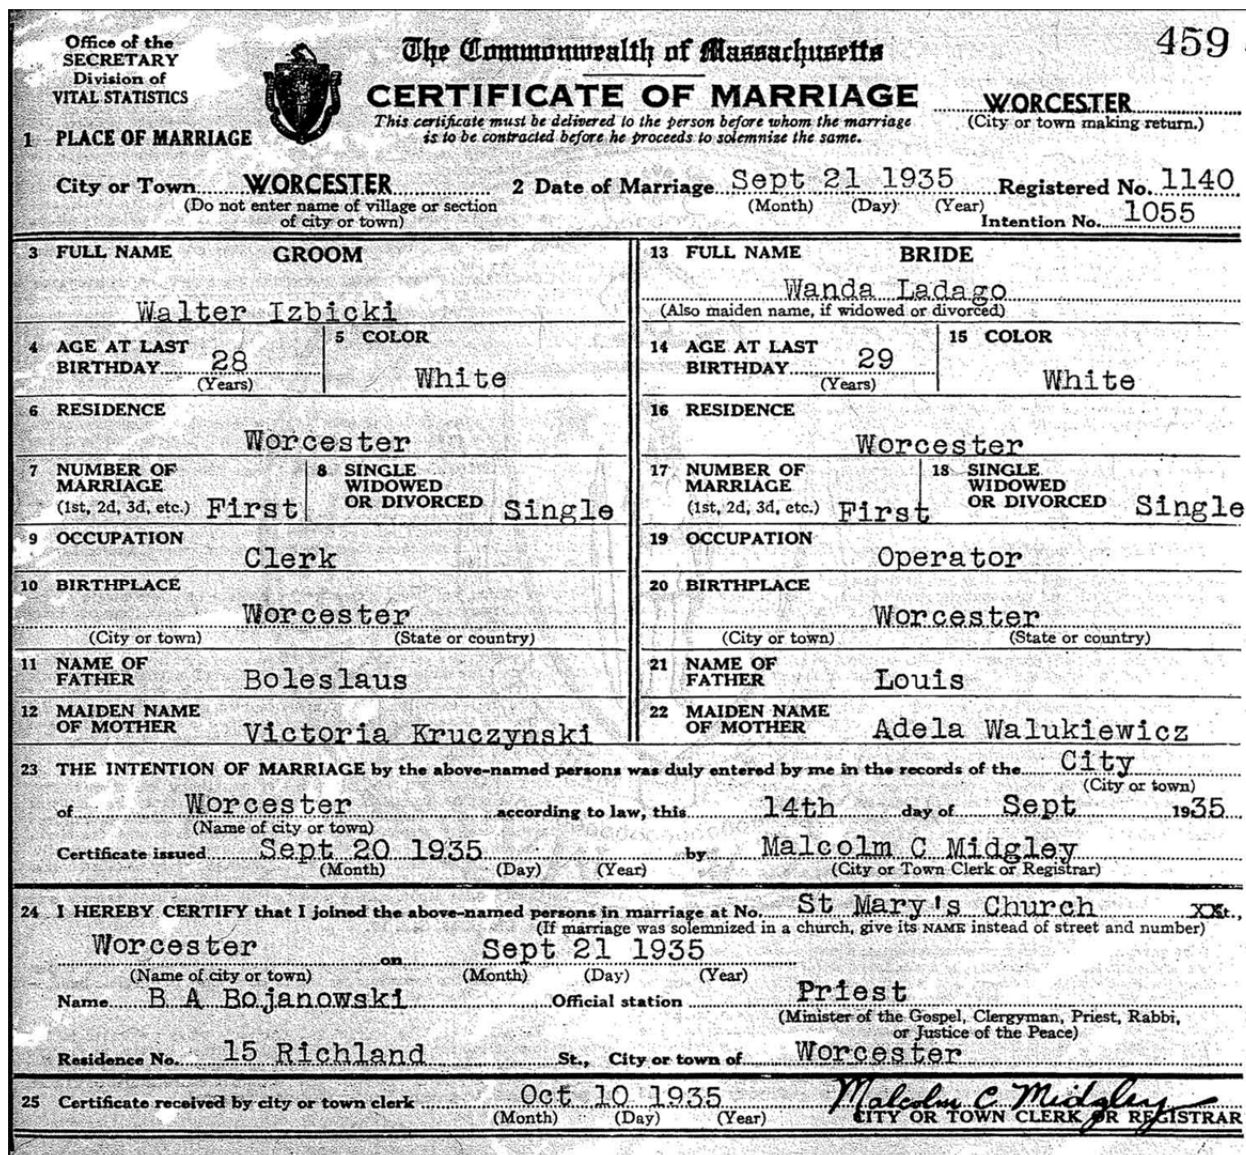 Office of the
SECRETARY
Division of
VITAL STATISTICS
The Commonwealth of Massachusetts
459
CERTIFICATE OF MARRIAGE
This certificate must be delivered to the person before whom the marriage
is to be contracted before he proceeds to solemnize the same.
WORCESTER
(City or town making return.)
1 PLACE OF MARRIAGE
City or Town WORCESTER 2 Date of Marriage Sept 21 1935 Registered No. 1140
(Do not enter name of village or section (Month) (Day) (Year)
of city or town) Intention No. 1055
3 FULL NAME GROOM
Walter Izbicki
4 AGE AT LAST
BIRTHDAY 28
(Years)
5 COLOR
White
6 RESIDENCE
Worcester
7 NUMBER OF
MARRIAGE
(1st, 2d, 3d, etc.) First
8 SINGLE
WIDOWED
OR DIVORCED Single
9 OCCUPATION
Clerk
10 BIRTHPLACE
Worcester
(City or town) (State or country)
11 NAME OF
FATHER Boleslaus
12 MAIDEN NAME
OF MOTHER Victoria Kruczynski
13 FULL NAME BRIDE
Wanda Ladago
(Also maiden name, if widowed or divorced)
14 AGE AT LAST
BIRTHDAY 29
(Years)
15 COLOR
White
16 RESIDENCE
Worcester
17 NUMBER OF
MARRIAGE
(1st, 2d, 3d, etc.) First
18 SINGLE
WIDOWED
OR DIVORCED Single
19 OCCUPATION
Operator
20 BIRTHPLACE
Worcester
(City or town) (State or country)
21 NAME OF
FATHER Louis
22 MAIDEN NAME
OF MOTHER Adela Walukiewicz
23 THE INTENTION OF MARRIAGE by the above-named persons was duly entered by me in the records of the City
(City or town)
of Worcester according to law, this 14th day of Sept 1935
(Name of city or town)
Certificate issued Sept 20 1935 by Malcolm C Midgley
(Month) (Day) (Year) (City or Town Clerk or Registrar)
24 I HEREBY CERTIFY that I joined the above-named persons in marriage at No. St Mary's Church XXSt.,
(If marriage was solemnized in a church, give its NAME instead of street and number)
Worcester on Sept 21 1935
(Name of city or town) (Month) (Day) (Year)
Name B A Bojanowski Official station Priest
(Minister of the Gospel, Clergyman, Priest, Rabbi,
or Justice of the Peace)
Residence No. 15 Richland St., City or town of Worcester
25 Certificate received by city or town clerk Oct 10 1935 Malcolm C. Midgley
(Month) (Day) (Year) CITY OR TOWN CLERK OR REGISTRAR